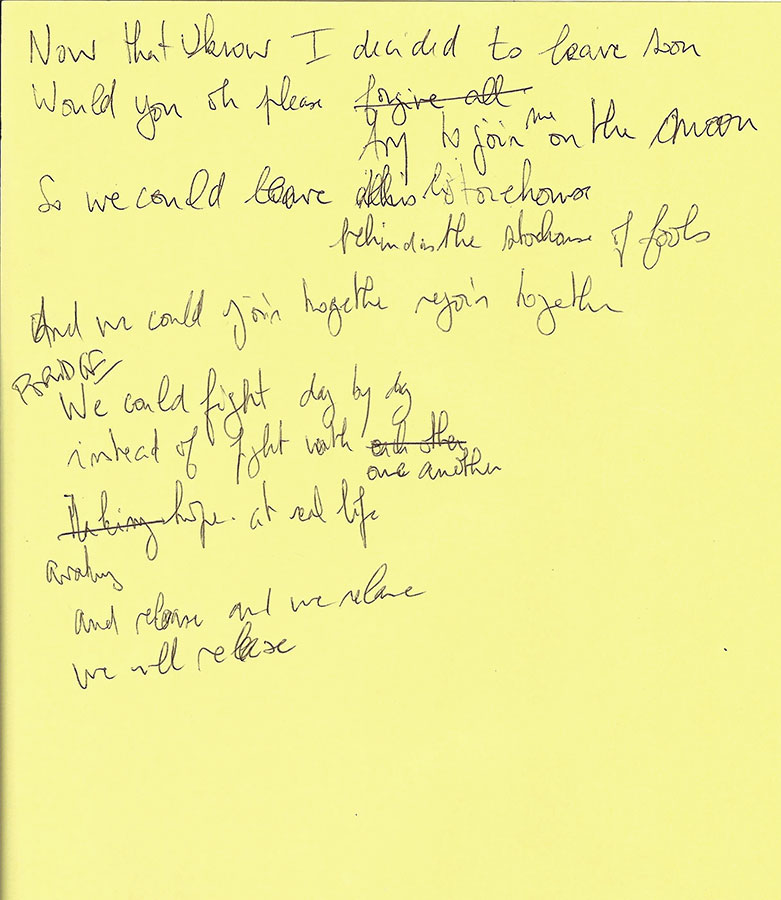 Now that Uknow I decided to leave soon
Would you oh please forgive all
try to join me on the moon
So we could leave this storehouse
behind us the storehouse of fools
And we could join together rejoin together
BRIDGE
We could fight day by day
instead of fight with each other
one another
Making hope. at real life
and release and we release
we will release